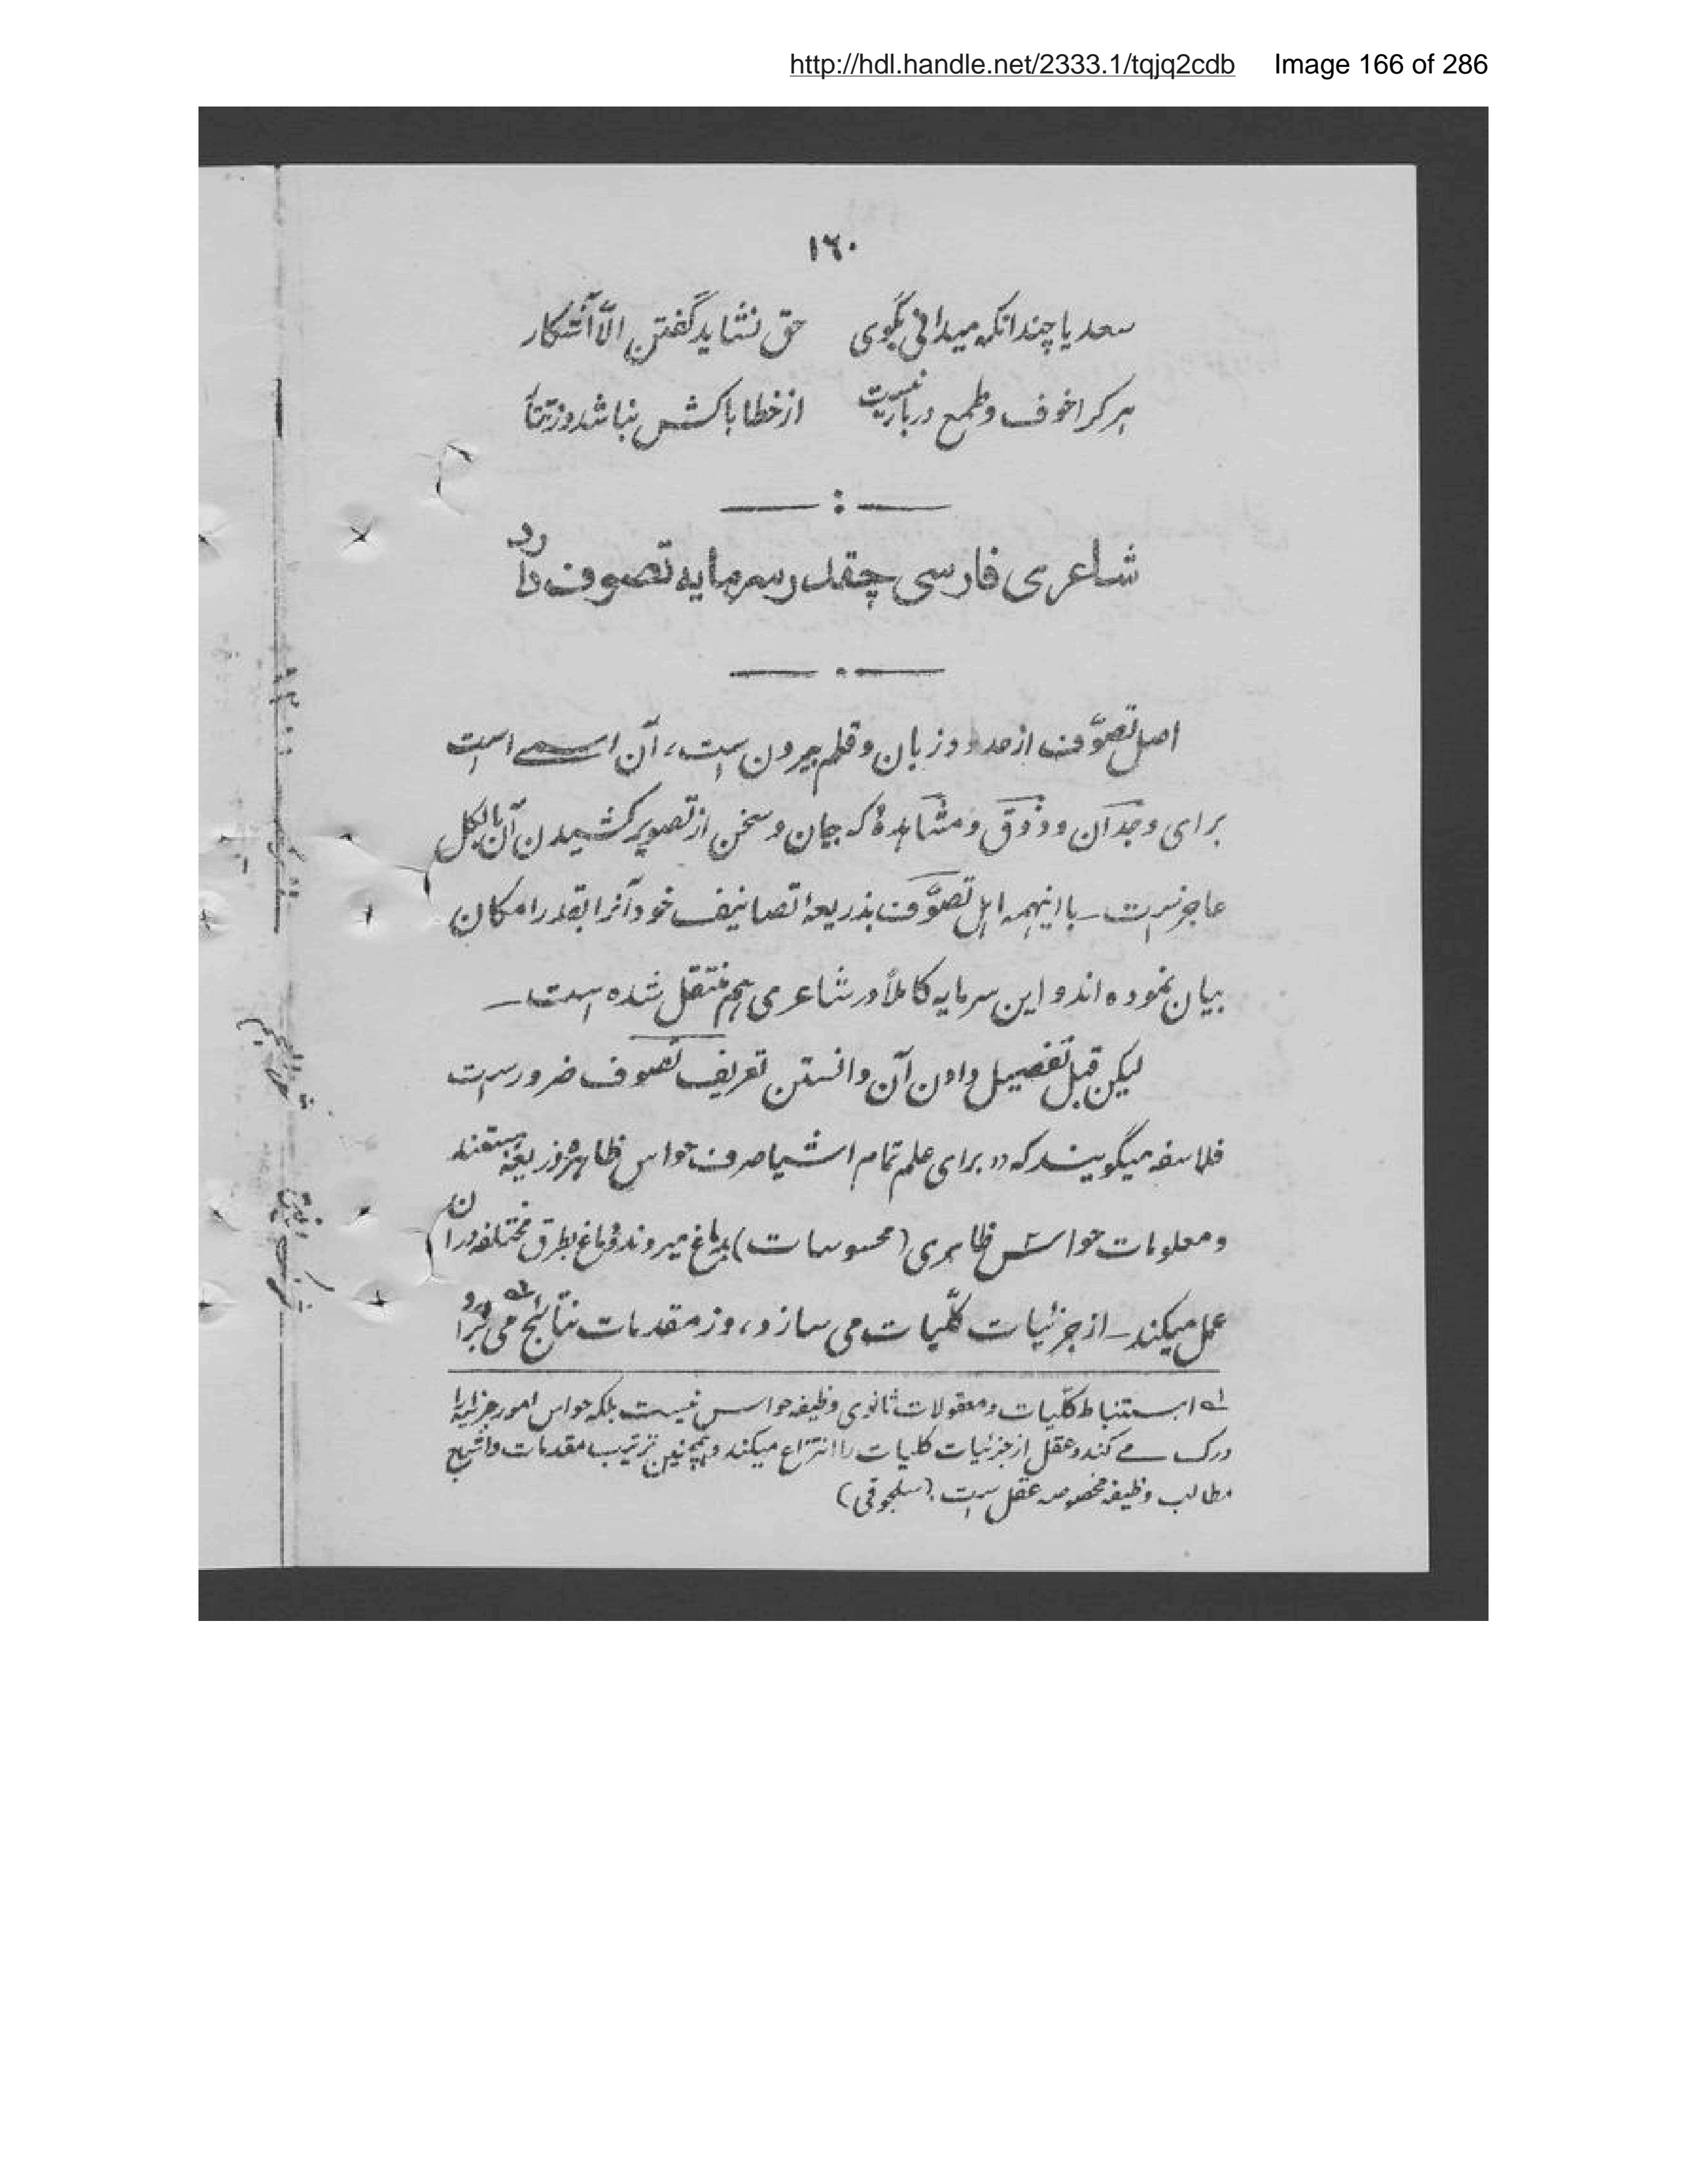 http://hdl.handle.net/2333.1/tqjq2cdb Image 166 of 286
١٦٠
سعدیا چندانکه میدانی بگوی حق نشاید گفتن الّا آشکار
هر کرا خوف و طمع در بار نیست از خطا باکش نباشد وز تتار
شاعری فارسی چقدر سرمایه تصوف دارد
اصل تصوّف از حدود زبان و قلم بیرون است، آن اسمے است
برای وجدان و ذوق و مشاهدۀ که بیان و سخن از تصویر کشیدن آن بالکل
عاجز است ـ با اینهمه اهل تصوّف بذریعۀ تصانیف خود آنرا بقدر امکان
بیان نموده اند و این سرمایه کاملاً در شاعری هم منتقل شده است ـ
لیکن قبل تفصیل دادن آن دانستن تعریف تصوف ضرور است
فلاسفه میگویند که «برای علم تمام اشیا صرف حواس ظاهر ذریعه هستند
و معلومات حواس ظاهری (محسوسات) بدماغ میروند و دماغ بطرق مختلفه در ان
عمل میکند ـ از جزئیات کلّیات می سازد، وز مقدمات نتائج می برارد
استنباط کلّیات و معقولات ثانوی وظیفه حواس نیست بلکه حواس امور جزئیه را
درک مے کند و عقل از جزئیات کلیات را انتزاع میکند و همچنین ترتیب مقدمات و
مطالب وظیفه مخصوصه عقل است. (سلجوقی)